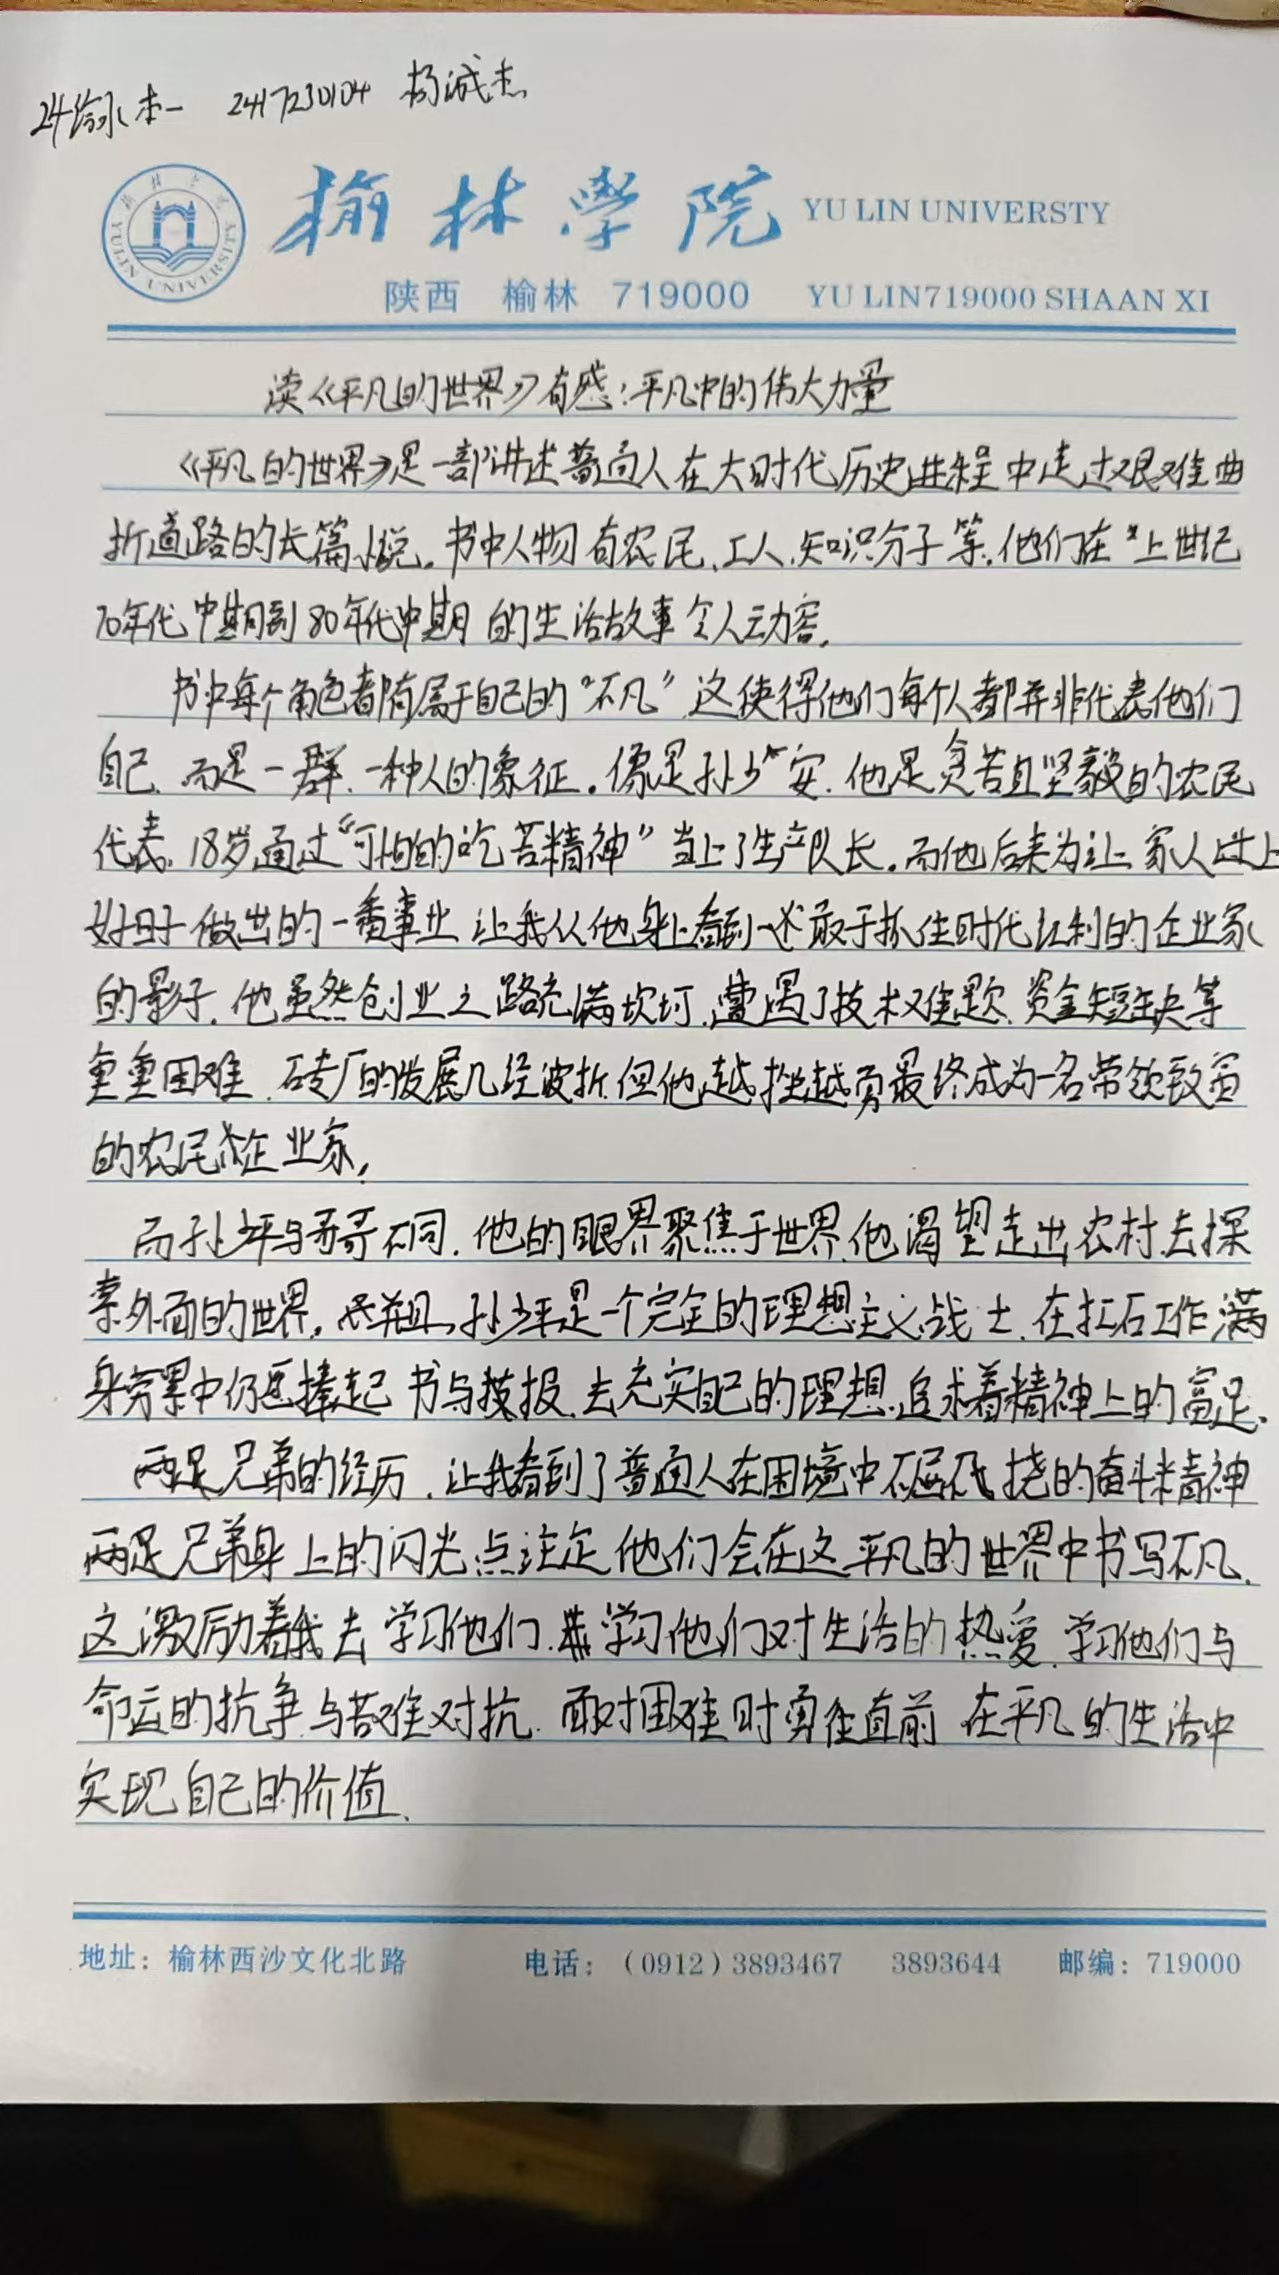 24给水本一 2417230104 杨诚杰
榆林学院 YU LIN UNIVERSTY
榆林学院 YULIN UNIVERSITY
陕西 榆林 719000 YU LIN719000 SHAAN XI
读《平凡的世界》有感:平凡中的伟大力量
《平凡的世界》是一部讲述普通人在大时代历史进程中走过艰难曲
折道路的长篇小说。书中人物有农民、工人、知识分子等,他们在上世纪
70年代中期到80年代中期的生活故事令人动容。
书中每个角色都有属于自己的“不凡”这使得他们每个人都并非代表他们
自己,而是一群、一种人的象征。像是孙少安,他是贫苦且坚毅的农民
代表,18岁通过“可怕的吃苦精神”当上了生产队长。而他后来为让家人过上
好日子做出的一番事业让我从他身上看到一还敢于抓住时代红利的企业家
的影子,他虽然创业之路充满坎坷,遭遇了技术难题、资金短缺等
重重困难,砖厂的发展几经波折,但他越挫越勇最终成为一名带领致富
的农民企业家。
而孙少平与哥哥不同,他的眼界聚焦于世界,他渴望走出农村,去探
索外面的世界。并且,孙少平是一个完全的理想主义战士,在扛石工作满
身劳累中仍捧起书与报,去充实自己的理想,追求着精神上的富足。
两兄弟的经历,让我看到了普通人在困境中不屈不挠的奋斗精神
两兄弟身上的闪光点注定他们会在这平凡的世界中书写不凡,
这激励着我去学习他们,学习他们对生活的热爱,学习他们与
命运的抗争与苦难对抗,面对困难时勇往直前在平凡的生活中
实现自己的价值.
地址:榆林西沙文化北路 电话:(0912)3893467 3893644 邮编:719000